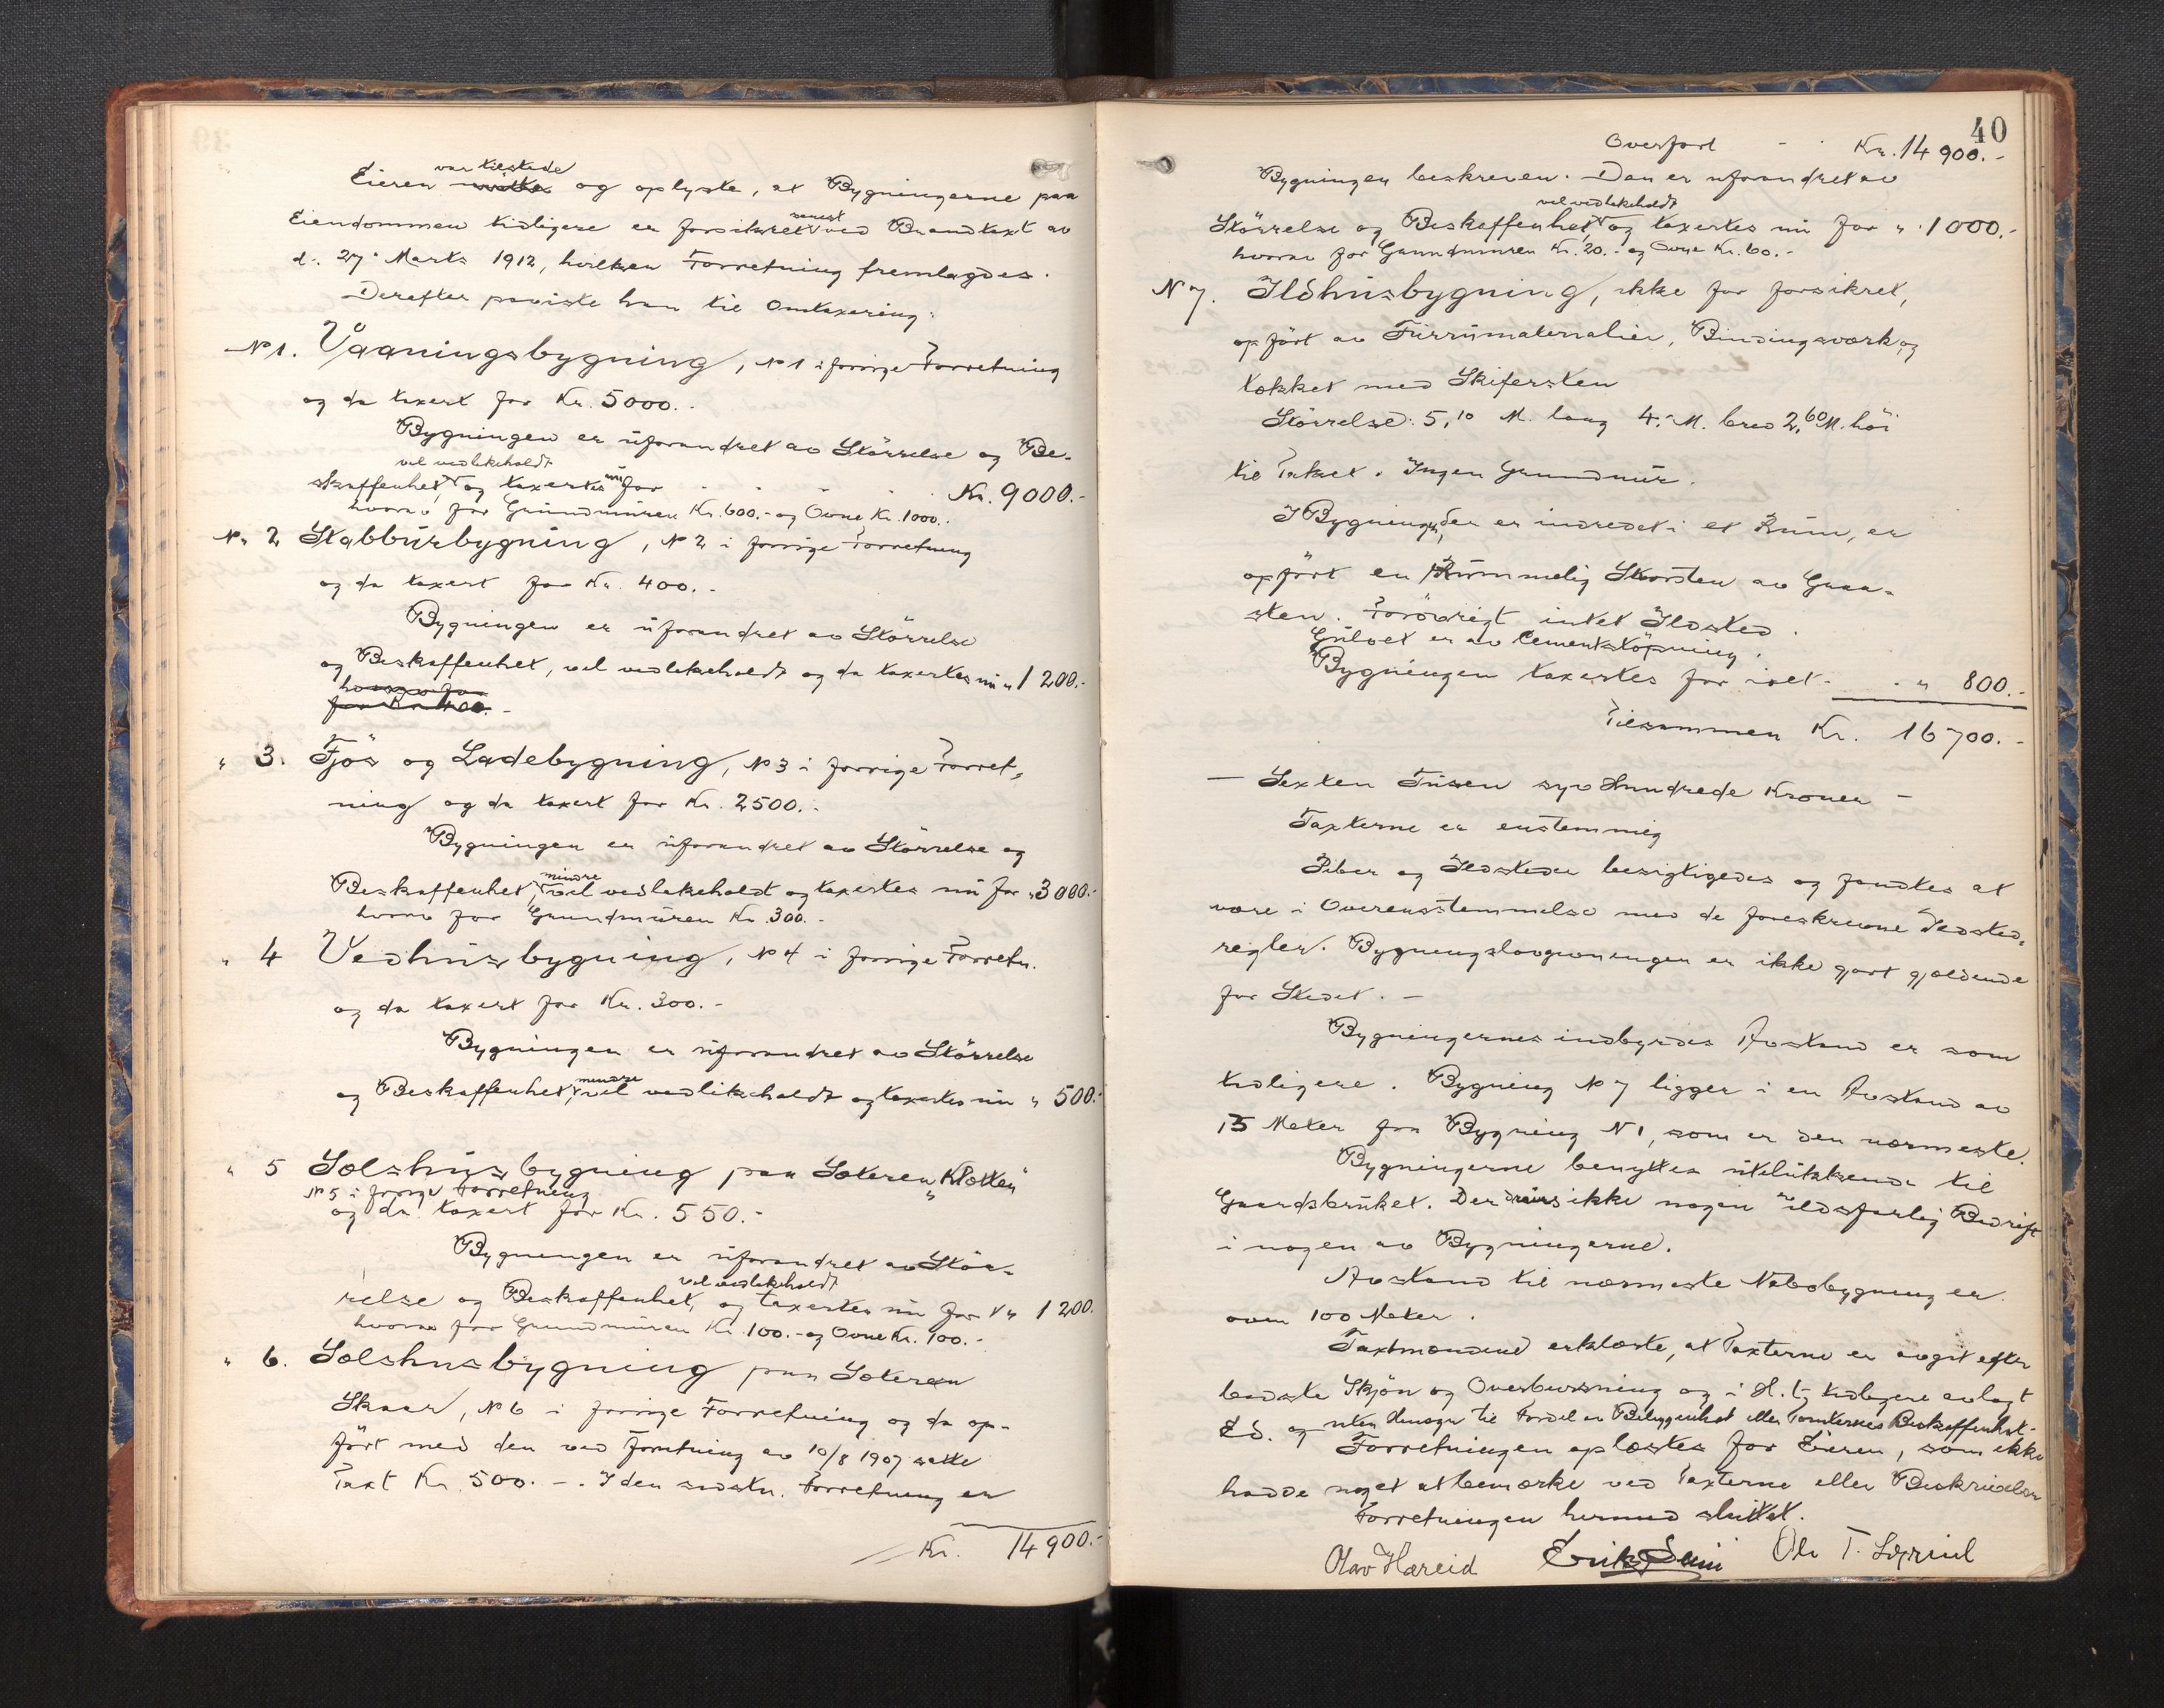 var tilstede
Eieren og oplyste, at Bygningerne paa
Eiendommen tidligere er forsikret senest ved Brandtaxt av
d. 27. Marts 1912, hvilken Forretning fremlagdes.
Derefter paaviste han til Omtaxering:
No 1. Vaaningsbygning, No 1 i forrige Forretning
og da taxert for Kr. 5000.-
Bygningen er uforandret av Störrelse og Be-
vel vedlikeholdt
skaffenhet, og taxertes nu for Kr. 9000.-
hvorav for Grundmuren Kr. 600.- og Ovne Kr. 1000.-
No 2 Stabbursbygning, No 2 i forrige Forretning
og da taxert for Kr. 400.-
Bygningen er uforandret av Störrelse
og Beskaffenhet, vel vedlikeholdt og da taxertes nu " 1200.-
hvorav for
for Kr. 400.-
" 3. Fjös og Ladebygning, No 3 i forrige Forret-
ning og da taxert for Kr. 2500.-
Bygningen er uforandret av Störrelse og
mindre
Beskaffenhet, vel vedlikeholdt og taxertes nu for " 3000.-
hvorav for Grundmuren Kr. 300.-
" 4 Vedhusbygning, No 4 i forrige Forretn.
og da taxert for Kr. 300.-
Bygningen er uforandret av Störrelse
mindre
og Beskaffenhet, vel vedlikeholdt og taxertes nu " 500.-
" 5 Selshusbygning paa Sæteren "Klotten"
No 5 i forrige Forretning
og da taxert for Kr. 550.-
Bygningen er uforandret av Stör-
vel vedlikeholdt
relse og Beskaffenhet, og taxertes nu for " 1200.
hvorav for Grundmuren Kr. 100.- og Ovne Kr. 100.-
" 6. Selshusbygning paa Sæteren
Skaar, No 6 i forrige Forretning og da op-
fört med den ved Forretning av 10/8 1907 satte
Taxt Kr. 500.-. I den sidstn. Forretning er
Kr. 14900.-
40
Overfört - - Kr. 14900.-
Bygningen beskreven. Den er uforandret av
vel vedlikeholdt
Störrelse og Beskaffenhet, og taxertes nu for " 1000.-
hvorav for Grundmuren Kr. 20.- og Ovne Kr. 60.-
No 7. Ildhusbygning, ikke för forsikret,
opfört av Furumaterialier, Bindingsværk og
tækket med Skifersten
Störrelse: 5,10 M. lang 4.- M. bred 2,60 M. höi
til Taket. Ingen Grundmur.
I Bygningen, der er indredet i et Rum, er
opfört en Rummelig Skorsten av Graa-
sten. Forövrigt intet Ildsted.
Gulvet er av Cementstöpning.
Bygningen taxertes for ialt - " 800.-
Tilsammen Kr. 16700.-
- Sexten Tusen syv Hundrede Kroner -
Taxterne er enstemmig
Piber og Ildsteder besigtigedes og fandtes at
være i Overensstemmelse med de foreskrevne Ildsted-
regler. Bygningslovgivningen er ikke gjort gjældende
for Stedet. -
Bygningernes indbyrdes Avstand er som
tidligere. Bygning No 7 ligger i en Avstand av
15 Meter fra Bygning No 1, som er den nærmeste.
Bygningerne benyttes utelukkende til
Gaardsbruket. Der drives ikke nogen ildsfarlig Bedrift
i nogen av Bygningerne.
Avstand til nærmeste Nabobygning er
over 100 Meter.
Taxtmændene erklærte, at Taxterne er avgit efter
bedste Skjön og Overbevisning og i H. t. tidligere avlagt
Ed. og uten Hensyn til Fordel av Beliggenhet eller Tomternes Beskaffenhet.-
Forretningen oplæstes for Eieren, som ikke
hadde noget at bemærke ved Taxterne eller Beskrivelsen
Forretningen hermed sluttet.
Olav Hæreid Ole T.